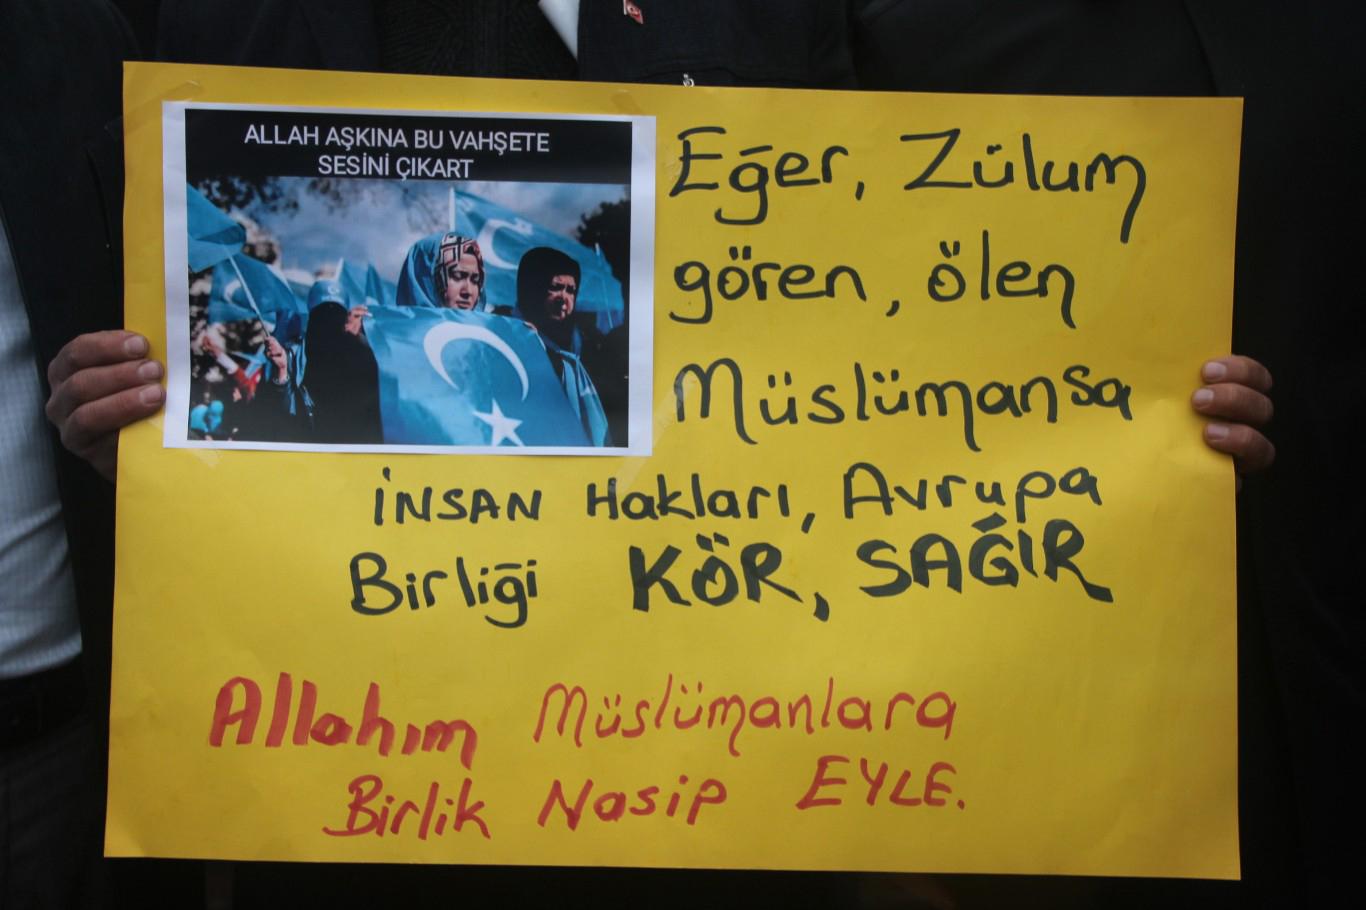 ALLAH AŞKINA BU VAHŞETE
SESİNİ ÇIKART
Eğer, Zülum
gören, ölen
Müslümansa
İNSAN Hakları, Avrupa
Birliği KÖR, SAĞIR
Allahım Müslümanlara
Birlik Nasip EYLE.